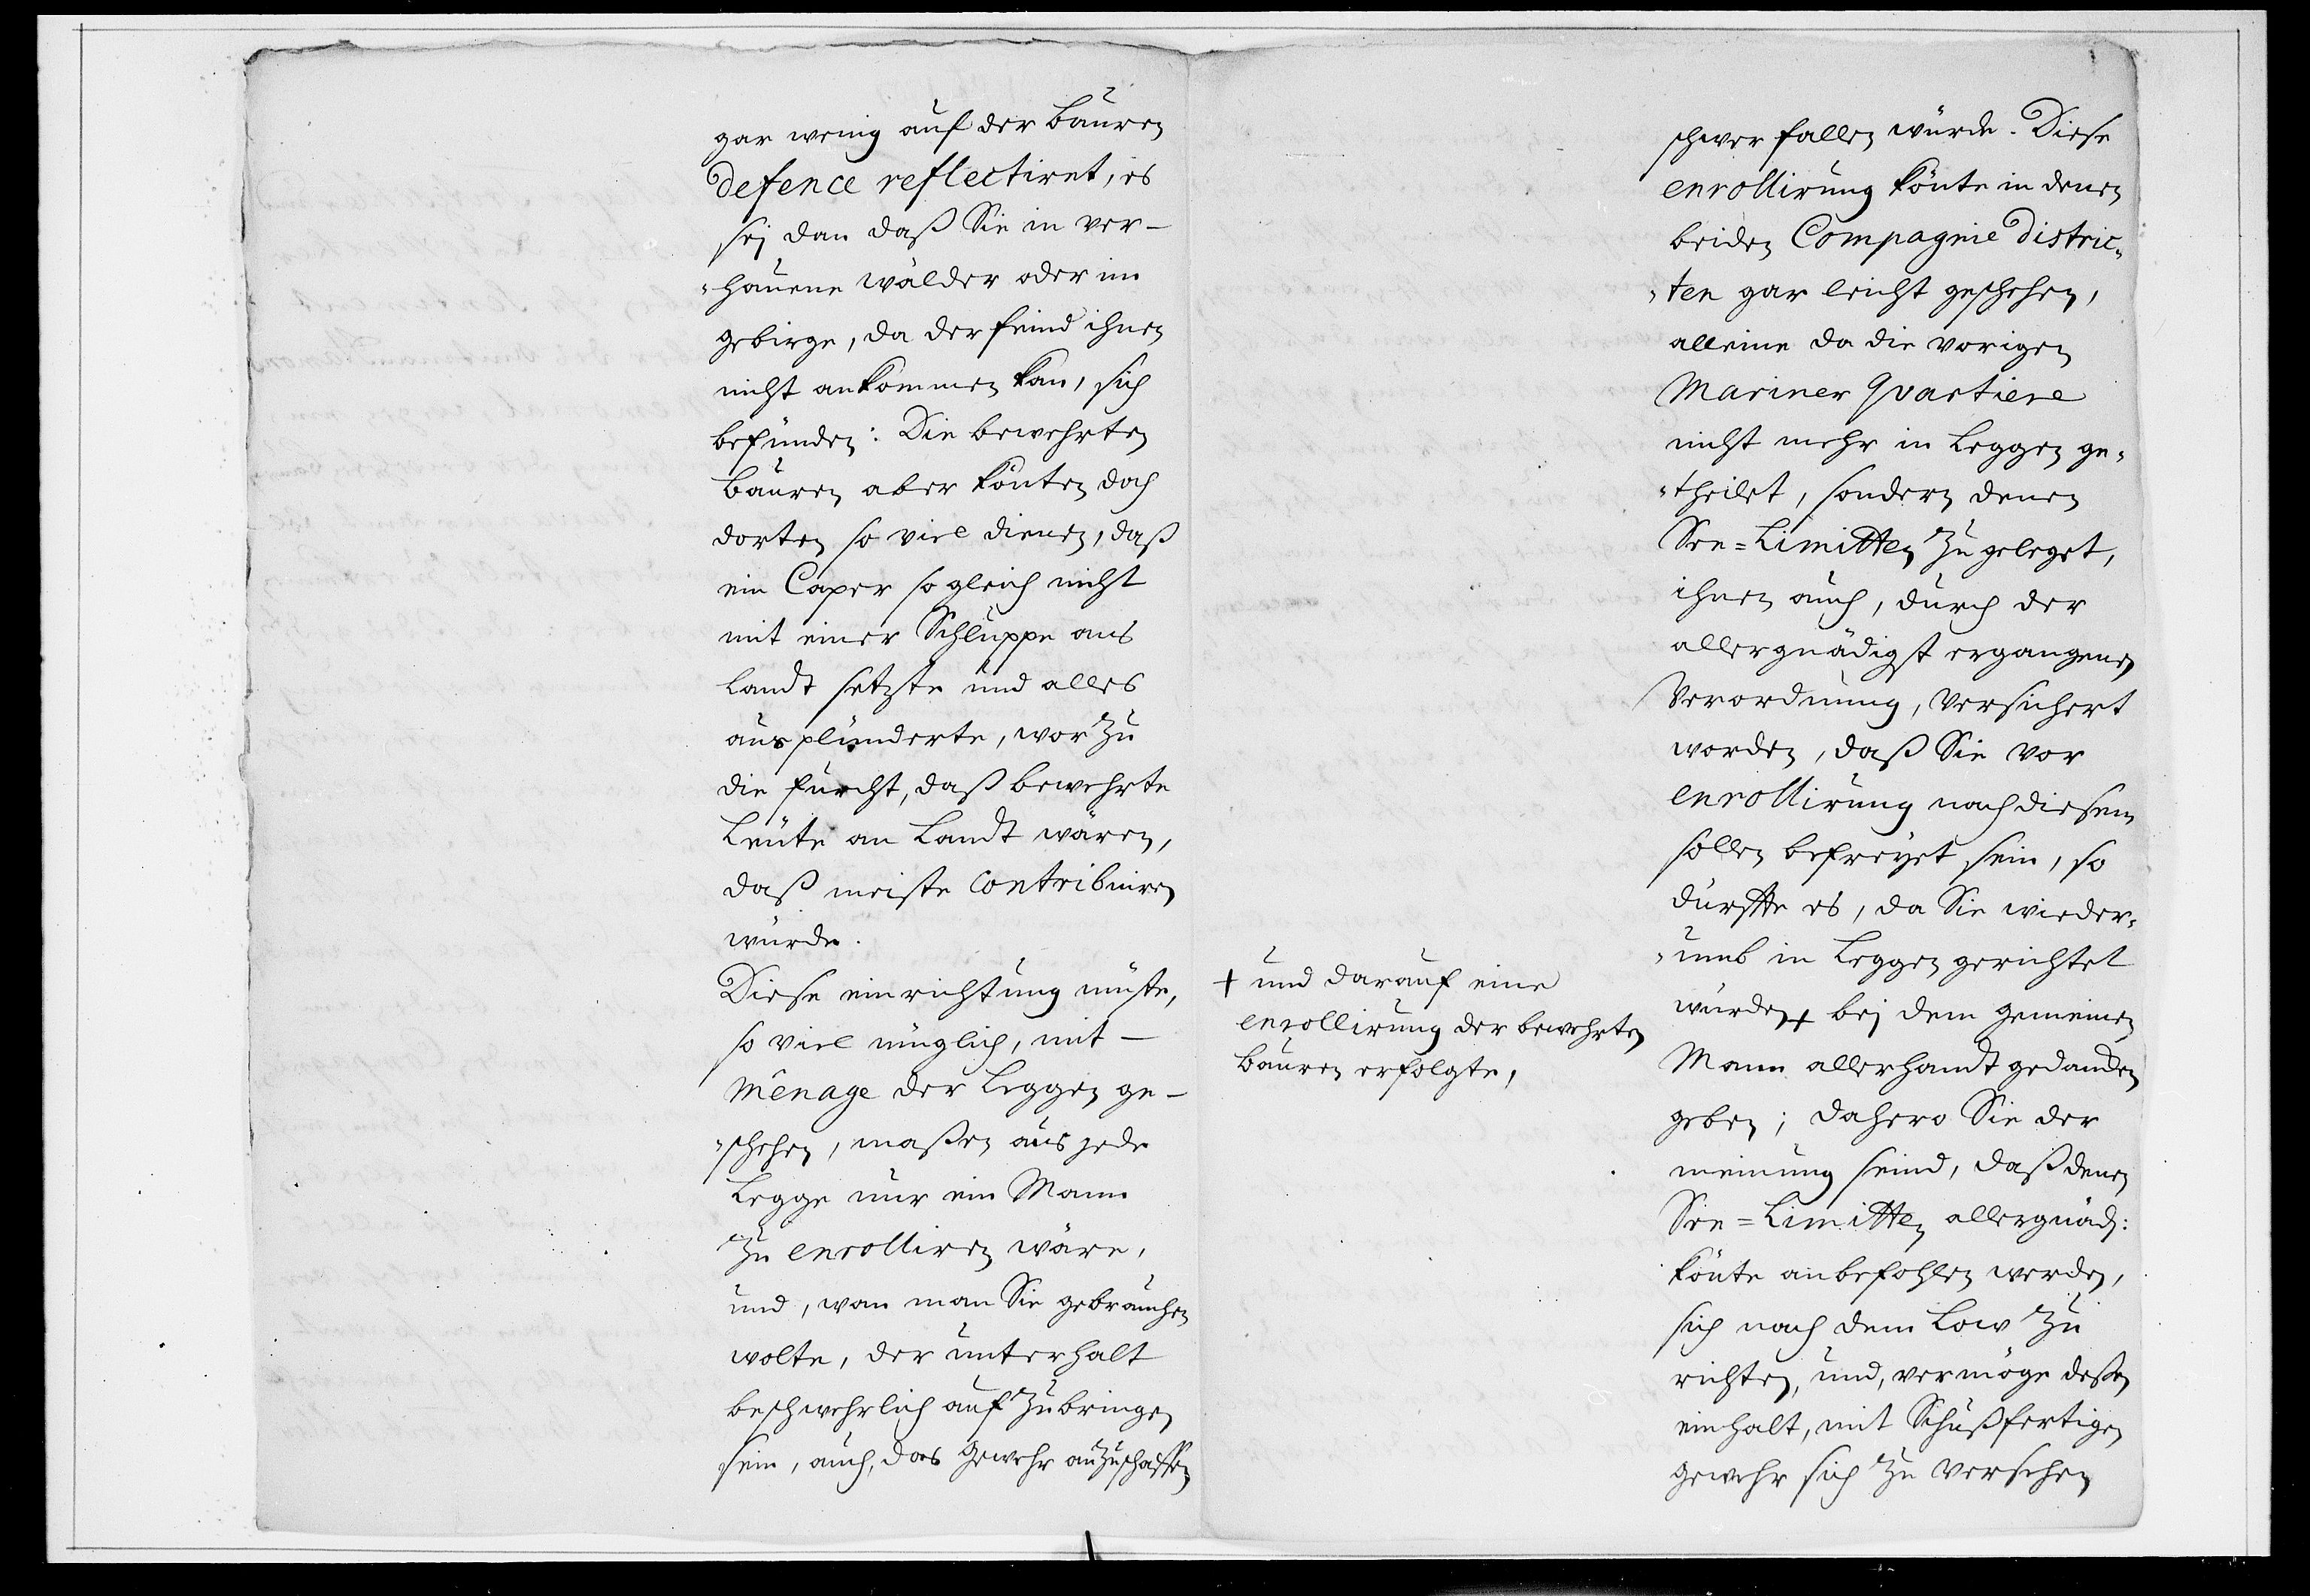 gar wenig auf der Bauren
defence reflectiret, es
sej dan daß Sie in ver-
"hauene wälder oder im
gebirge, da der feind ihnen
nicht ankommen kan, sich
befünden: Die bewehrten
Bauren aber könten doch
dorten so viel dienen, daß
ein Caper so gleich nicht
mit einer Schluppe ans
Landt setzte und alles
ausplünderte, wor zu
die furcht, daß bewehrte
Leute an Landt wären,
daß meiste contribuiren
würde.
Diese einrichtung müste,
so viel müglich, mit-
mênage der Leggen ge-
"schehen, maßen aus jede
Legge nur ein Mann
zu enrolliren wäre,
und, wan man Sie gebrauchen
wolte, der unterhalt
beschwehrlich auf zubringen
sein, auch, das Gewehr anzuschaffen
schwer fallen würde. Diese
enrollirung könte in denen
beiden Compagnie distric"
"ten gar leicht geschehen,
alleine da die vorigen
Mariner Qvartiere
nicht mehr in Leggen ge"
"theilet, sondern denen
See=Limitten zu geleget,
ihnen auch, durch der
allergnädigst ergangenen
Verordnung, versichert
worden, daß Sie vor
enrollirung nach diesem
sollen befreyet sein, so
durffte es, da Sie wieder"
"umb in Leggen gerichtet
würden + bej dem gemeinen
Mann allerhandt gedancken
geben; dahero Sie der
meinung seind, daß denen
See=Limitten allergnäd:
könte anbefohlen werden,
sich nach dem Low zu
richten, und, vermöge deßen
einhalt, mit Schußfertigen
gewehr sich zu versehen
+ und darauf eine
enrollirung der bewehrten
Bauren erfolgte,